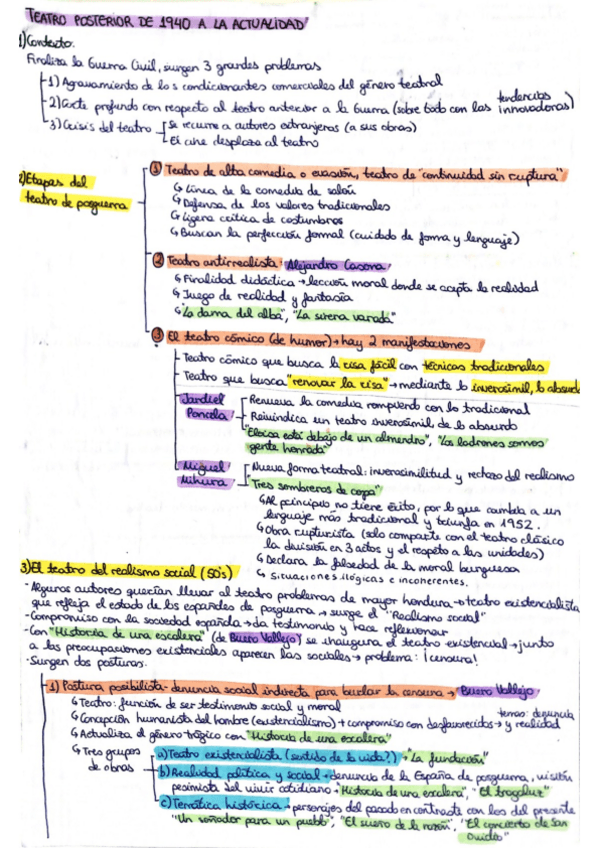 TEATRO POSTERIOR DE 1940 A LA ACTUALIDAD
1) Contexto.
Finaliza la Guerra Civil, surgen 3 grandes problemas
1) Agravamiento de los condicionantes comerciales del género teatral
2) Corte profundo con respecto al teatro anterior a la Guerra (sobre todo con las tendencias innovadoras)
3) Crisis del teatro
Se recurre a autores extranjeros (a sus obras)
El cine desplaza al teatro
2) Etapas del teatro de posguerra
① Teatro de alta comedia o evasión, teatro de "continuidad sin ruptura"
↳ Línea de la comedia de salón
↳ Defensa de los valores tradicionales
↳ Ligera crítica de costumbres
↳ Buscan la perfección formal (cuidado de forma y lenguaje)
② Teatro antirrealista. Alejandro Casona
↳ Finalidad didáctica → lección moral donde se acepta la realidad
↳ Juego de realidad y fantasía
↳ "La dama del alba", "La sirena varada"
③ El teatro cómico (de humor) → hay 2 manifestaciones
Teatro cómico que busca la risa fácil con técnicas tradicionales
Teatro que busca "renovar la risa" → mediante lo inverosímil, lo absurdo
Jardiel Poncela
Renueva la comedia rompiendo con lo tradicional
Reivindica un teatro inverosímil de lo absurdo
"Eloísa está debajo de un almendro", "Los ladrones somos
gente honrada"
Miguel Mihura
Nueva forma teatral: inverosimilitud y rechazo del realismo
"Tres sombreros de copa"
↳ Al principio no tiene éxito, por lo que cambia a un
lenguaje más tradicional y triunfa en 1952.
↳ Obra rupturista (solo comparte con el teatro clásico
la división en 3 actos y el respeto a las unidades)
↳ Declara la falsedad de la moral burguesa
↳ Situaciones ilógicas e incoherentes.
3) El teatro del realismo social (50's)
- Algunos autores querían llevar al teatro problemas de mayor hondura → teatro existencialista
que refleja el estado de los españoles de posguerra → surge el "Realismo social"
- Compromiso con la sociedad española → da testimonio y hace reflexionar
- Con "Historia de una escalera" (de Buero Vallejo) se inaugura el teatro existencial → junto
a las preocupaciones existenciales aparecen las sociales → problema: ¡censura!
- Surgen dos posturas.
1) Postura posibilista - denuncia social indirecta para burlar la censura → Buero Vallejo
↳ Teatro: función de ser testimonio social y moral
↳ Concepción humanista del hombre (existencialismo) + compromiso con desfavorecidos → temas: denuncia y realidad
↳ Actualiza el género trágico con "Historia de una escalera"
↳ Tres grupos de obras
a) Teatro existencialista (sentido de la vida?) → "La fundación"
b) Realidad política y social - denuncia de la España de posguerra, visión
pesimista del vivir cotidiano → "Historia de una escalera", "El tragaluz"
c) Temática histórica - personajes del pasado en contraste con los del presente
"Un soñador para un pueblo", "El sueño de la razón", "El concierto de San
Ovidio"